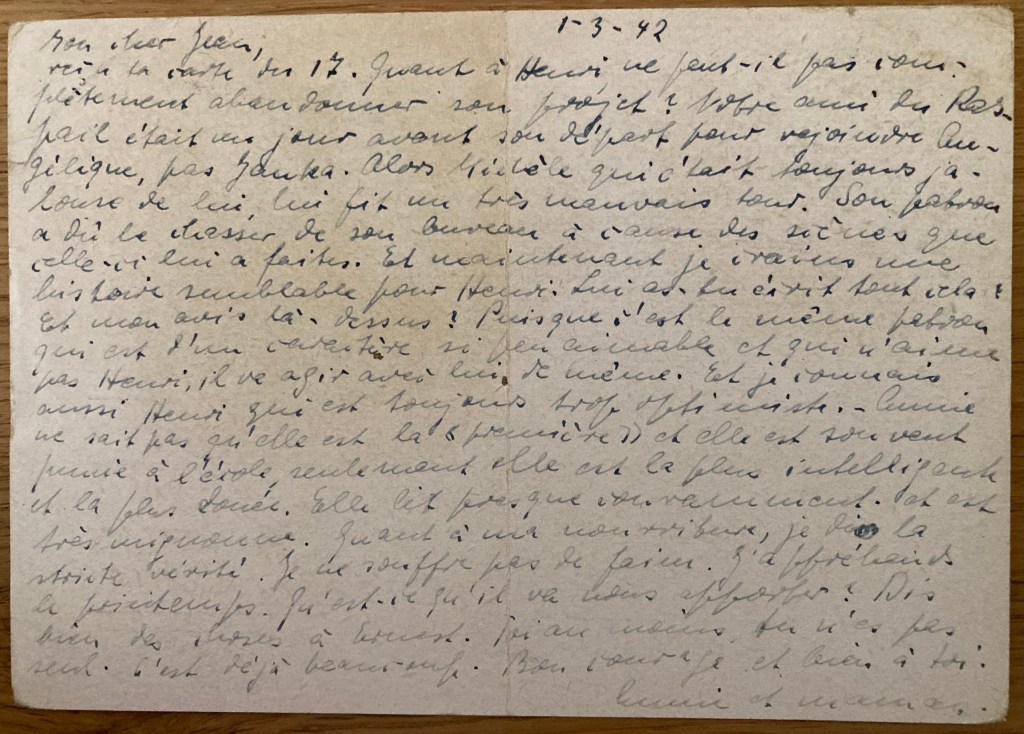 1-3-42
Mon cher Jean,
reçu ta carte du 17. Quant à Henri, ne peut-il pas com-
plètement abandonner son projet? Notre ami du Ras-
pail était un jour avant son départ pour rejoindre An-
gélique, pas Yanka. Alors Michèle qui était toujours ja-
louse de lui, lui fit un très mauvais tour. Son patron
a dû le chasser de son bureau à cause des scènes que
celle-ci lui a faites. Et maintenant je crains une
histoire semblable pour Henri. Lui as-tu écrit tout cela?
Et mon avis là-dessus? Puisque c'est le même patron
qui est d'un caractère si peu aimable et qui n'aime
pas Henri, il va agir avec lui de même. Et je connais
aussi Henri qui est toujours trop optimiste. - Annie
ne sait pas qu'elle est la «première» et elle est souvent
punie à l'école, seulement elle est la plus intelligente
et la plus douée. Elle lit presque couramment. et est
très mignonne. Quant à ma nourriture, je dis la
stricte vérité. Je ne souffre pas de faim. J'appréhende
le printemps. Qu'est-ce qu'il va nous apporter? Dis
bien des choses à Ernest. Toi au moins, tu n'es pas
seul. C'est déjà beaucoup. Bon courage et bien à toi.
Annie et maman.